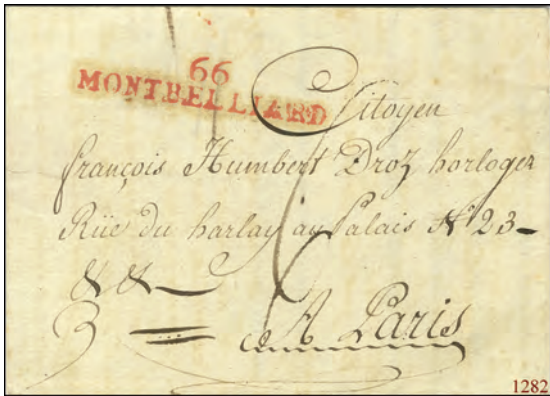 66
MONTBELLIARD
Citoyen
françois Humbert Droz horloger
Rüe du harlay au Palais N° 23
& &
A Paris
1282